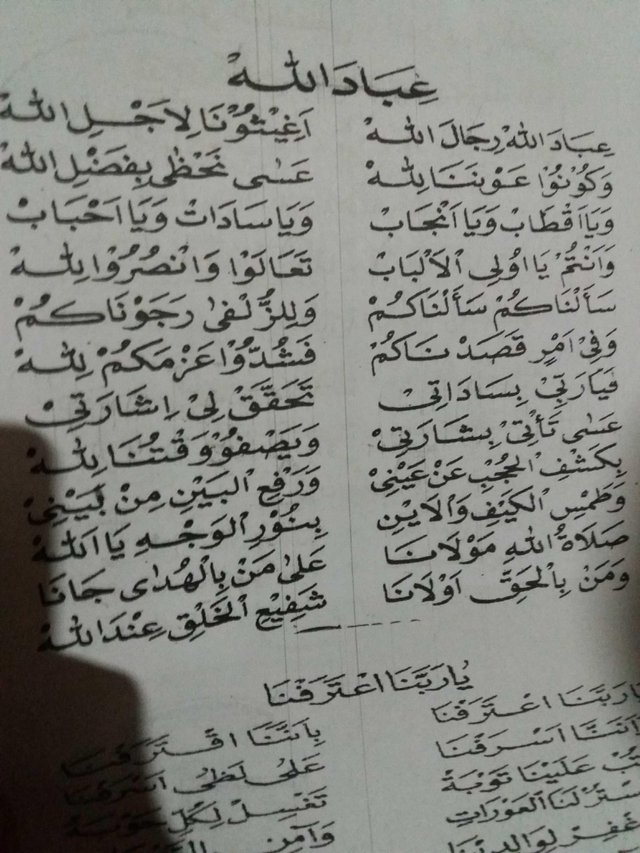 عِبَادَ اللهْ
عِبَادَ اللهْ رِجَالَ اللهْ اَغِيْثُوْنَا لِاَجْلِ اللهْ
وَكُوْنُوْا عَوْنَنَا لِلهْ عَسٰى نَحْظٰى بِفَضْلِ اللهْ
وَيَا اَقْطَابْ وَيَا اَنْجَابْ وَيَا سَادَاتْ وَيَا اَحْبَابْ
وَاَنْتُمْ يَا اُولِى الْاَلْبَابْ تَعَالَوْا وَانْصُرُوْا لِلهْ
سَأَلْنَاكُمْ سَأَلْنَاكُمْ وَلِلزُّلْفٰى رَجَوْنَاكُمْ
وَفِىْ اَمْرٍ قَصَدْنَاكُمْ فَشُدُّوْا عَزْمَكُمْ لِلهْ
فَيَارَبِّيْ بِسَادَاتِىْ تَحَقَّقْ لِىْ اِشَارَتِىْ
عَسٰى تَأْتِىْ بِشَارَتِىْ وَيَصْفُوْ وَقْتُنَا لِلهْ
بِكَشْفِ الْحُجْبِ عَنْ عَيْنِىْ وَرَفْعِ الْبَيْنِ مِنْ بَيْنِىْ
وَطَمْسِ الْكَيْفِ وَالْاَيْنِ بِنُوْرِ الْوَجْهِ يَا اَللهْ
صَلَاةُ اللهِ مَوْلَانَا عَلٰى مَنْ بِالْهُدٰى جَانَا
وَمَنْ بِالْحَقِّ اَوْلَانَا شَفِيْعِ الْخَلْقِ عِنْدَ اللهْ
يَارَبَّنَا اعْتَرَفْنَا
يَارَبَّنَا اعْتَرَفْنَا بِاَنَّنَا اقْتَرَفْنَا
اَنَّنَا اَسْرَفْنَا عَلٰى لَظٰى اَشْرَفْنَا
تُبْ عَلَيْنَا تَوْبَةْ تَغْسِلْ لِكُلِّ حَوْبَةْ
لَنَا الْعَوْرَاتِ وَاٰمِنِ